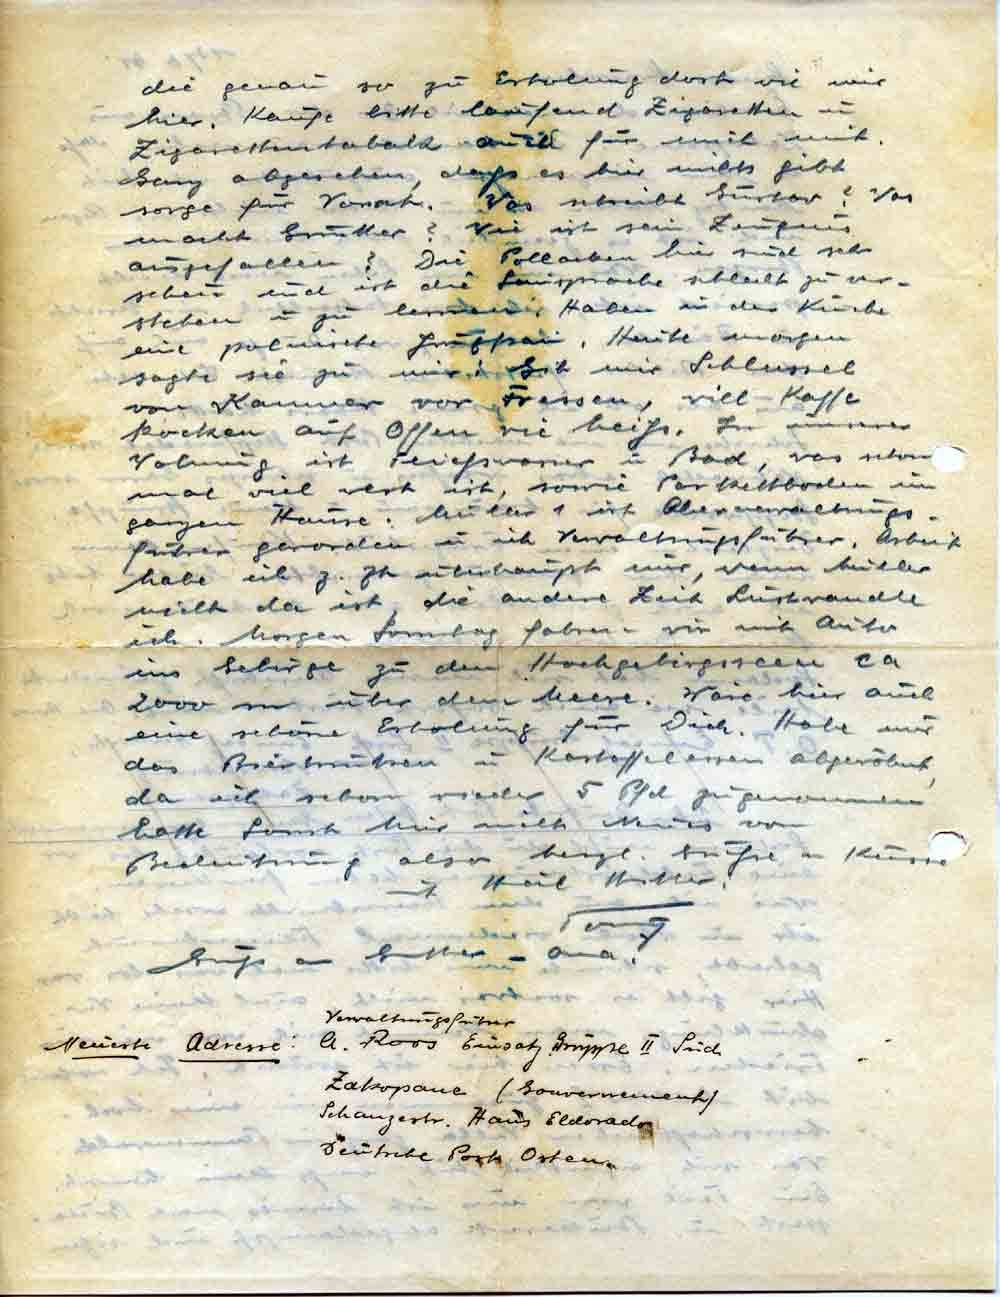 die genau so zu Erholung dort wie wir
hier. Kaufe bitte laufend Zigaretten u
Zigarettentabak auch für mich mit.
Ganz abgesehen, dass es hier nichts gibt
sorge für Vorrat. Was schreibt Gustav? Was
macht Günther? Wie ist sein Zeugnis
ausgefallen? Die Pollacken hier sind sehr
scheu und ist die Sprache schlecht zu ver-
stehen u zu lernen. Haben in der Küche
eine polnische Putzfrau. Heute morgen
sagte sie zu mir: Gib mir Schlüssel
von Kammer vor Fressen, will Kaffe
kocken auf Offen wie heiss. In unserer
Wohnung ist Fliesswasser u Bad, was schon
mal viel wert ist, sowie Parkettboden im
ganzen Hause. Müller 1 ist Oberverwaltungs-
führer geworden u ich Verwaltungsführer. Arbeit
habe ich z. Zt überhaupt nur, wenn Müller
nicht da ist, die andere Zeit Lustwandle
ich. Morgen Sonntag fahren wir mit Auto
ins Gebirge zu den Hochgebirgsseen ca
2000 m über dem Meere. Wäre hier auch
eine schöne Erholung für Dich. Habe mir
das Biertrinken u Kartoffelessen abgewöhnt,
da ich schon wieder 5 Pfd zugenommen
hatte Sonst hier nicht Neues von
Bedeutung also herzl. Grüsse u Küsse
Heil Hitler!
Toni
Gruss an Günther - Oma!
Verwaltungsführer
Neueste Adresse: A. Roos Einsatz Gruppe II Süd
Zakopane (Gouvernement)
Schanzestr. Haus Eldorado
Deutsche Post Osten.